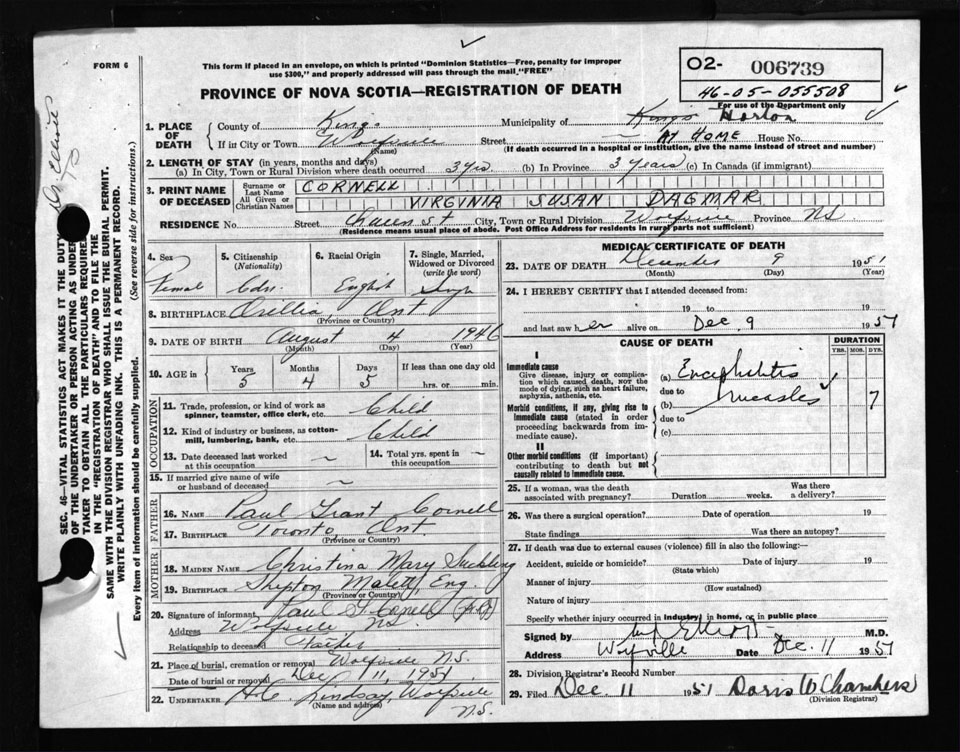 FORM 6
This form if placed in an envelope, on which is printed "Dominion Statistics—Free, penalty for improper
use $300," and properly addressed will pass through the mail "FREE"
PROVINCE OF NOVA SCOTIA—REGISTRATION OF DEATH
02- 006739
46-05-055508
For use of the Department only
Dr Elliott
SEC. 46—VITAL STATISTICS ACT MAKES IT THE DUTY
OF THE UNDERTAKER OR PERSON ACTING AS UNDER
TAKER TO OBTAIN ALL THE PARTICULARS REQUIRED
IN THE "REGISTRATION OF DEATH" AND TO FILE THE
SAME WITH THE DIVISION REGISTRAR WHO SHALL ISSUE THE BURIAL PERMIT.
WRITE PLAINLY WITH UNFADING INK. THIS IS A PERMANENT RECORD.
Every item of information should be carefully supplied. (See reverse side for instructions.)
1. PLACE OF DEATH
County of Kings Municipality of Kings Horton
If in City or Town Wolfville (Name) Street AT HOME House No.
(If death occurred in a hospital or institution, give the name instead of street and number)
2. LENGTH OF STAY (in years, months and days)
(a) In City, Town or Rural Division where death occurred 3 yrs. (b) In Province 3 years (c) In Canada (if immigrant)
3. PRINT NAME OF DECEASED
Surname or Last Name CORNELL
All Given or Christian Names VIRGINIA SUSAN DAGMAR
RESIDENCE No. Street City, Town or Rural Division Wolfville Province NS
(Residence means usual place of abode. Post Office Address for residents in rural parts not sufficient)
4. Sex Female
5. Citizenship (Nationality) Cdn.
6. Racial Origin English
7. Single, Married, Widowed or Divorced (write the word) Single
8. BIRTHPLACE Orillia, Ont
(Province or Country)
9. DATE OF BIRTH August 4 1946
(Month) (Day) (Year)
10. AGE in Years 5 Months 4 Days 5 If less than one day old hrs. or min.
OCCUPATION
11. Trade, profession, or kind of work as spinner, teamster, office clerk, etc. Child
12. Kind of industry or business, as cotton-mill, lumbering, bank, etc. Child
13. Date deceased last worked at this occupation ~
14. Total yrs. spent in this occupation ~
15. If married give name of wife or husband of deceased ~
FATHER
16. NAME Paul Grant Cornell
17. BIRTHPLACE Toronto, Ont.
(Province or Country)
MOTHER
18. MAIDEN NAME Christina Mary Suckling
19. BIRTHPLACE Shepton Malett, Eng.
(Province or Country)
20. Signature of informant Paul G. Cornell
Address Wolfville NS.
Relationship to deceased Father
21. Place of burial, cremation or removal Wolfville N.S.
Date of burial or removal Dec 11, 1951
22. UNDERTAKER Lindsay, Wolfville
(Name and address) N.S.
MEDICAL CERTIFICATE OF DEATH
23. DATE OF DEATH December 9 1951
(Month) (Day) (Year)
24. I HEREBY CERTIFY that I attended deceased from:
19 to 19
and last saw her alive on Dec. 9 1951
CAUSE OF DEATH
DURATION
YRS. MOS. DYS.
I
Immediate cause
Give disease, injury or complication which caused death, not the mode of dying, such as heart failure, asphyxia, asthenia, etc.
(a) Encephalitis
due to
Morbid conditions, if any, giving rise to immediate cause (stated in order proceeding backwards from immediate cause).
(b) measles 7
due to
(c)
II
Other morbid conditions (if important) contributing to death but not causally related to immediate cause.
25. If a woman, was the death associated with pregnancy? Duration weeks. Was there a delivery?
26. Was there a surgical operation? Date of operation 19
State findings Was there an autopsy?
27. If death was due to external causes (violence) fill in also the following:—
Accident, suicide or homicide? Date of injury 19
(State which)
Manner of injury
(How sustained)
Nature of injury
Specify whether injury occurred in industry, in home, or in public place
Signed by Elliott M.D.
Address Wolfville Date Dec. 11 1951
28. Division Registrar's Record Number
29. Filed Dec. 11 1951 Doris W Chambers
(Division Registrar)